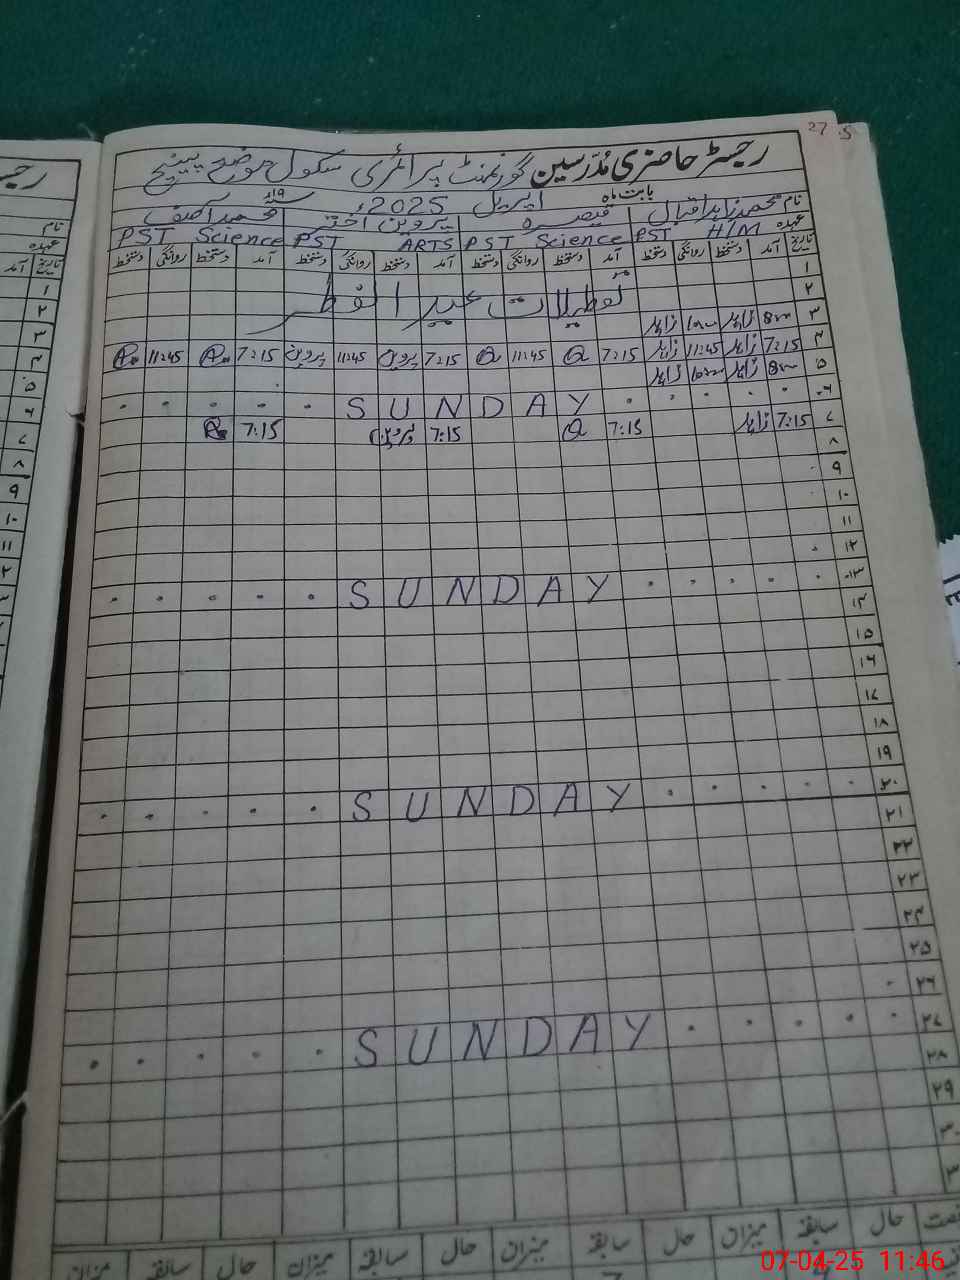 27 .5
رجسٹر حاضری مُدرّسین گورنمنٹ پرائمری سکول موضع
بابت ماہ اپریل 2025ء سنہ ۱۹ء
نام محمد زاہد اقبال قیصرہ پروین اختر محمد آصف
عہدہ PST H/M PST Science PST ARTS PST Science
تاریخ آمد دستخط روانگی دستخط آمد دستخط روانگی دستخط آمد دستخط روانگی دستخط آمد دستخط روانگی دستخط
۱
۲ تعطیلات عید الفطر
۳ زاہد زاہد
۴ 7:15 زاہد 11:45 زاہد 7:15 11:45 7:15 پروین 11:45 پروین 7:15 11:45
۵ زاہد زاہد
۶ SUNDAY
۷ 7:15 زاہد 7:15 7:15 پروین 7:15
۸
۹
۱۰
۱۱
۱۲
۱۳ SUNDAY
۱۴
۱۵
۱۶
۱۷
۱۸
۱۹
۲۰ SUNDAY
۲۱
۲۲
۲۳
۲۴
۲۵
۲۶
۲۷ SUNDAY
۲۸
۲۹
۳۰
حال سابقہ میزان حال سابقہ میزان حال سابقہ میزان حال سابقہ میزان
07-04-25 11:46